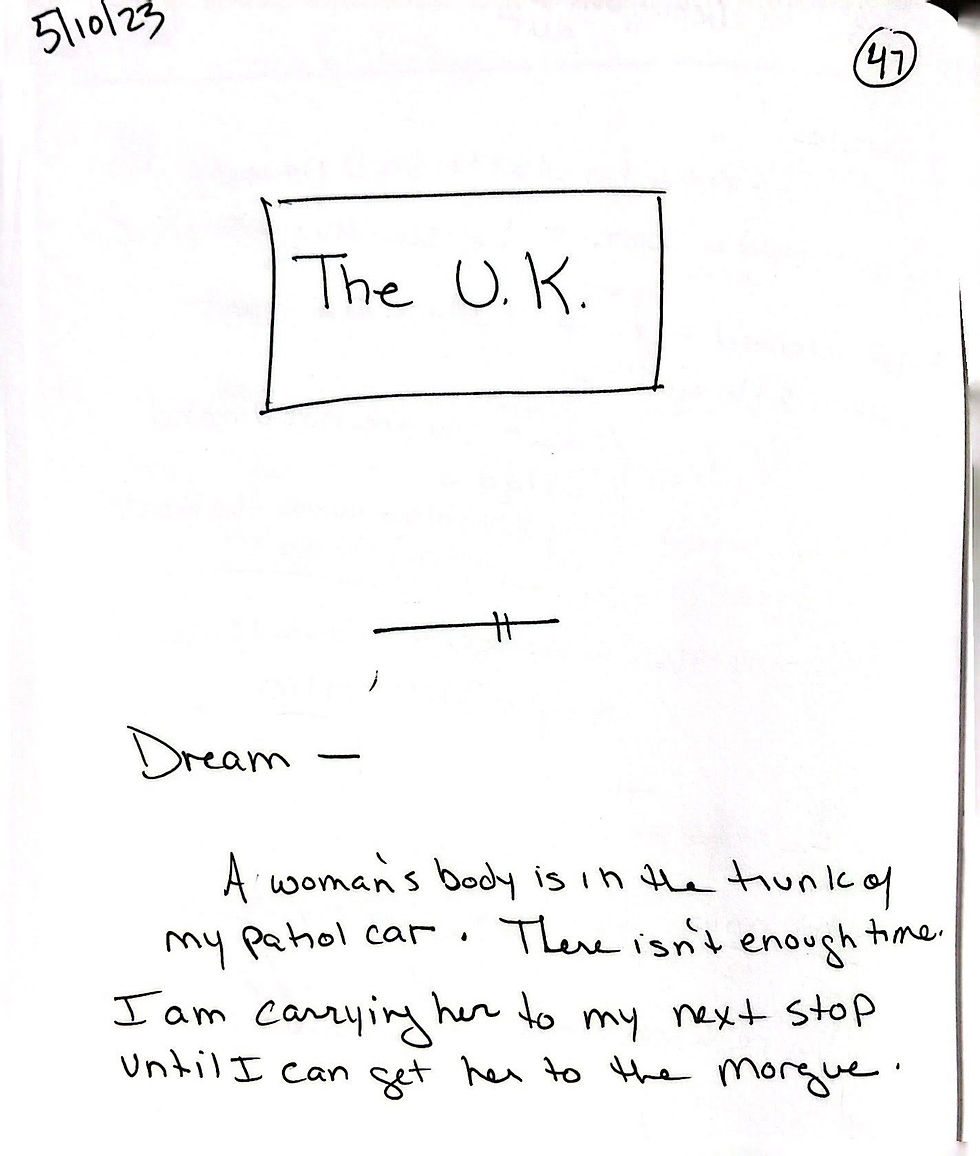 5/10/23
47
The U.K.
Dream —
A woman's body is in the trunk of
my patrol car. There isn't enough time.
I am carrying her to my next stop
until I can get her to the morgue.